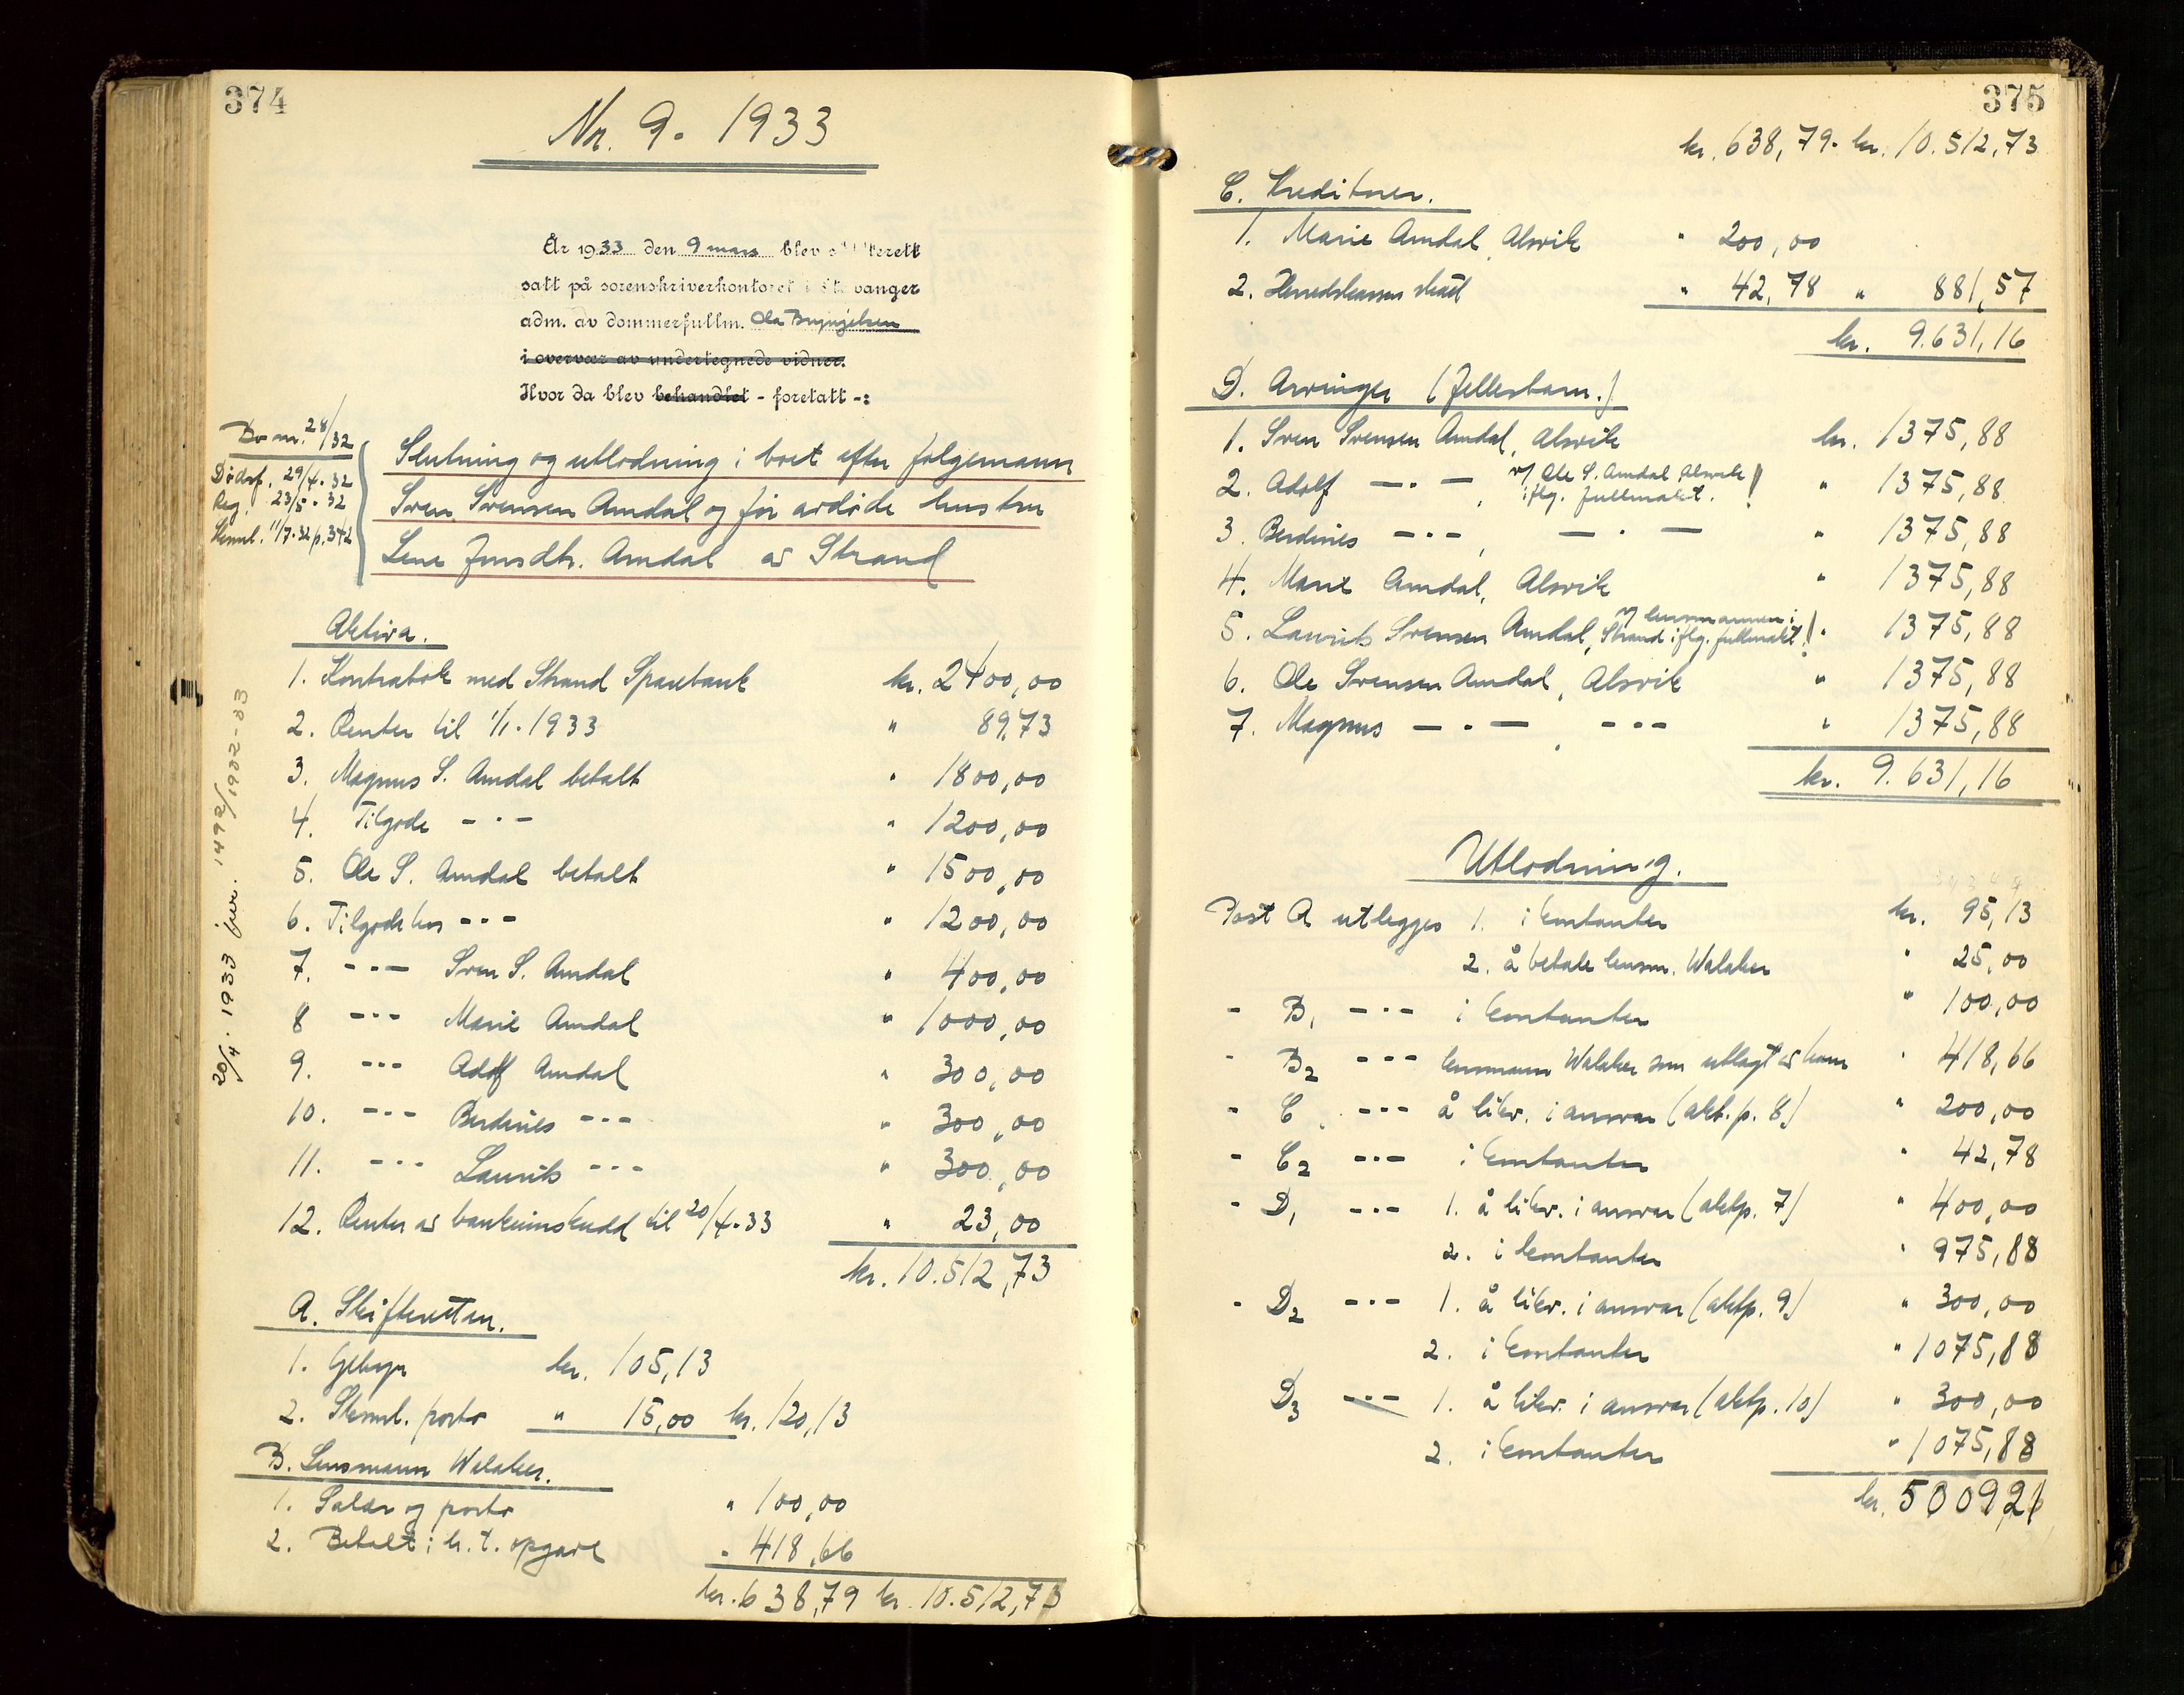 374
Nr. 9. 1933
År 1933 den 9 mars blev skifterett
satt på sorenskriverkontoret i Stavanger
adm. av dommerfullm. Ola Brynjelsen
i overvær av undertegnede vidner.
Hvor da blev behandlet - foretatt -:
Bo nr. 28/32
Dødsf. 29/4. 32
Reg. 23/5. 32
Skiml. 11/7.32 p. 342
Slutning og utlodning i boet efter følgemann
Sven Svensen Amdal og før avdøde hustru
Lene Jonsdtr. Amdal av Strand
20/4. 1933 jur. 1492/1932-33
Aktiva.
1. Kontrabok med Strand Sparebank kr. 2400,00
2. Renter til 1/1. 1933 " 89,73
3. Magnus S. Amdal betalt " 1800,00
4. Tilgode - · - " 1200,00
5. Ole S. Amdal betalt " 1500,00
6. Tilgode hos - · - " 1200,00
7. - · - Sven S. Amdal " 400,00
8 - · - Marie Amdal " 1000,00
9. - · - Adolf Amdal " 300,00
10. - · - Berdines - · - " 300,00
11. - · - Laurits - · - " 300,00
12. Renter av bankinnskudd til 20/4. 33 " 23,00
kr. 10.512,73
A. Skifteretten.
1. Gebyr kr. 105,13
2. Skml. porto " 15,00 kr. 120,13
B. Lensmann Walaker.
1. Salær og porto " 100,00
2. Betalt i h. t. opgave " 418,66
kr. 638,79 kr. 10.512,73
375
kr. 638,79. kr. 10.512,73
C. Kreditorer.
1. Marie Amdal, Alsvik " 200,00
2. Herredskassen skatt " 42,78 " 881,57
kr. 9.631,16
D. Arvinger (fellesbarn.)
1. Sven Svensen Amdal, Alsvik kr. 1375,88
2. Adolf - · - , v/ Ole S. Amdal Alsvik iflg. fullmakt. ! " 1375,88
3. Berdines - · - , - · - " 1375,88
4. Marie Amdal, Alsvik " 1375,88
5. Laurits Svensen Amdal, v/ lensmannen i Strand iflg. fullmakt ! " 1375,88
6. Ole Svensen Amdal, Alsvik " 1375,88
7. Magnus - · - , - · - " 1375,88
kr. 9.631,16
Utlodning.
Post A utlegges 1. i kontanter kr. 95,13
2. å betale lensm. Walaker " 25,00
- B1 - · - i kontanter " 100,00
- B2 - · - lensmann Walaker som utlagt av ham " 418,66
- C1 - · - å likv. i ansvar (akt. p. 8) " 200,00
- C2 - · - i kontanter " 42,78
- D1 - · - 1. å likv. i ansvar (aktp. 7) " 400,00
2. i kontanter " 975,88
- D2 - · - 1. å likv. i ansvar (aktp. 9) " 300,00
2. i kontanter " 1075,88
D3 - · - 1. å likv. i ansvar (aktp. 10) " 300,00
2. i kontanter " 1075,88
kr. 5009,21